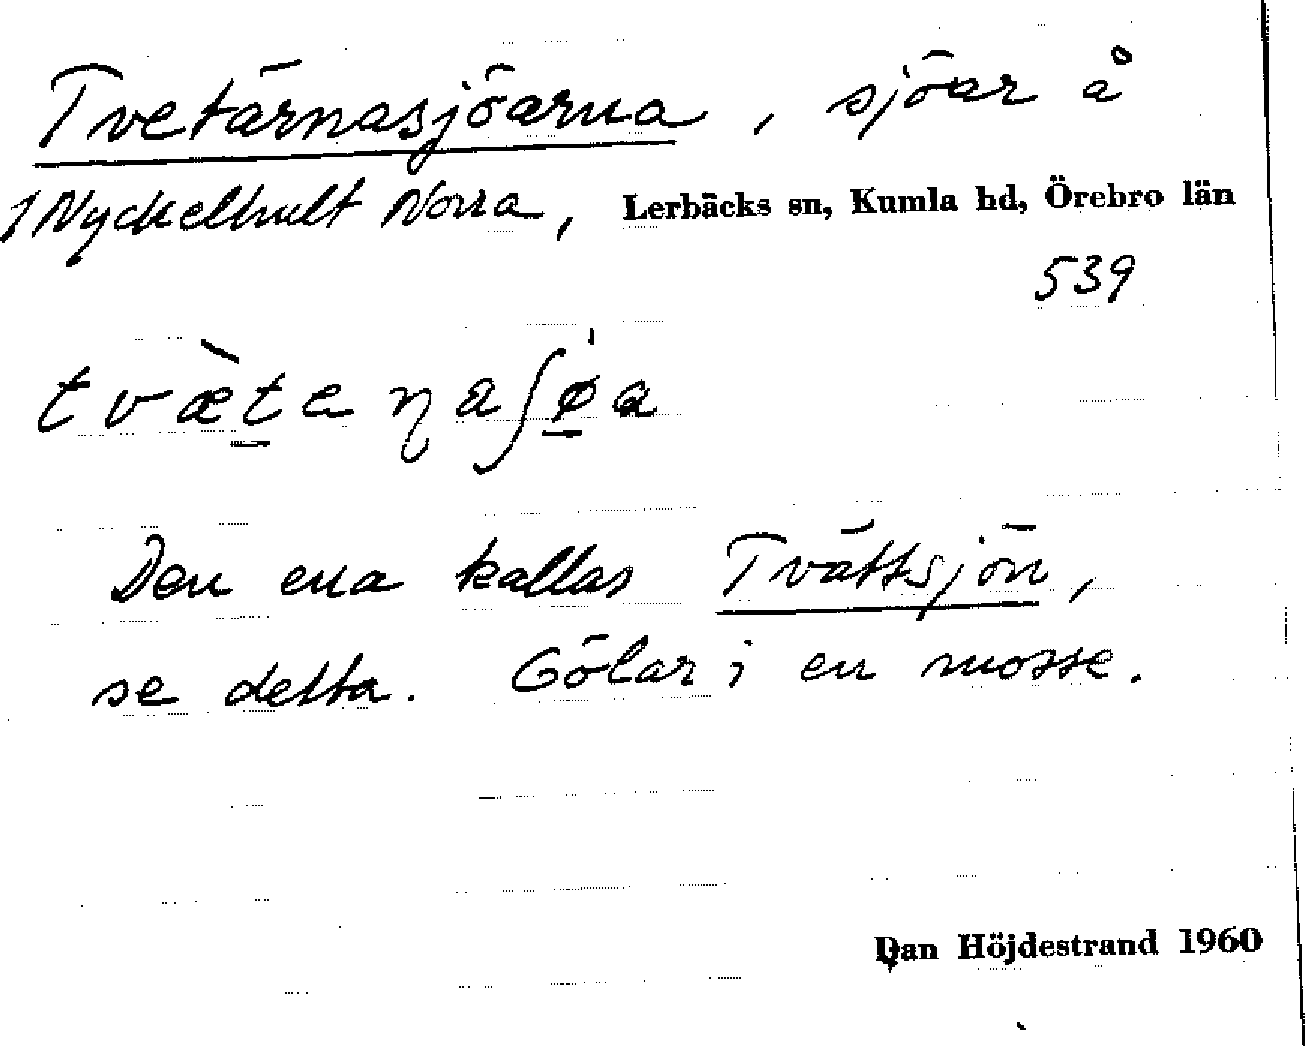 Tvetärnasjöarna, sjöar å
1 Nyckelhult Norra, Lerbäcks sn, Kumla hd, Örebro län
539
tvæ̀tenaʃøa
Den ena kallas Tvättsjön,
se detta. Gölar i en mosse.
Dan Höjdestrand 1960